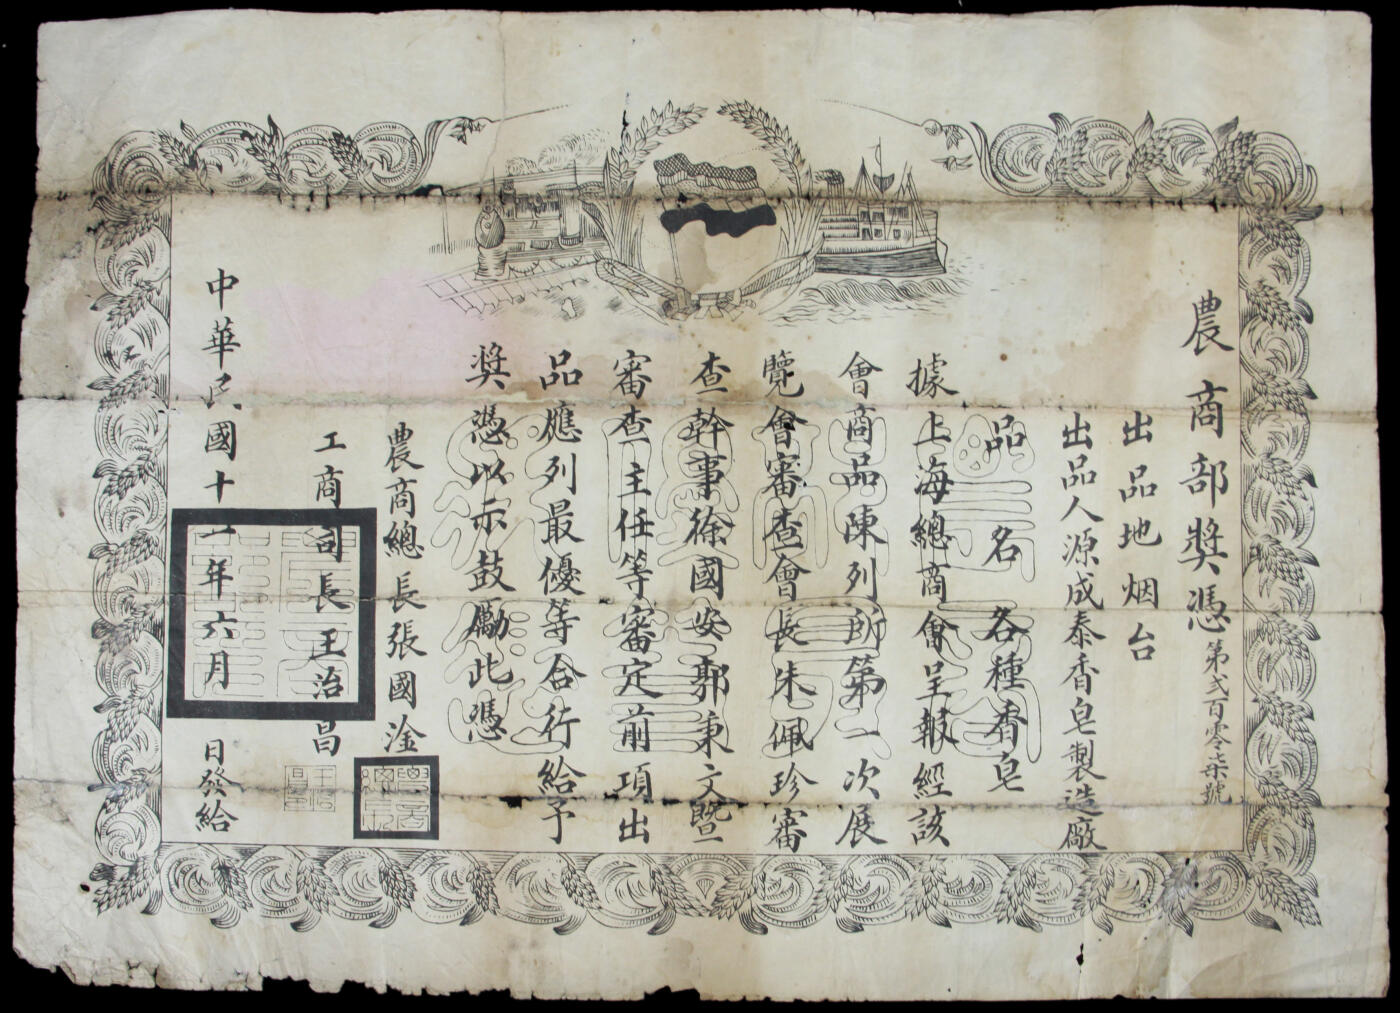 農商部獎憑 第貳百零柒號
出品地 烟台
出品人 源成泰香皂製造廠
品名 各種香皂
據上海總商會呈報經該
會商品陳列所第一次展
覽會審查會長朱佩珍審
查幹事徐國安郭秉文暨
審查主任等審定前項出
品應列最優等合行給予
獎憑以示鼓勵此憑
農商總長張國淦
工商司長王治昌
中華民國十一年六月 日發給